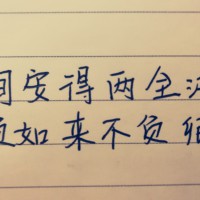 间安得两全法
负如来不负卿